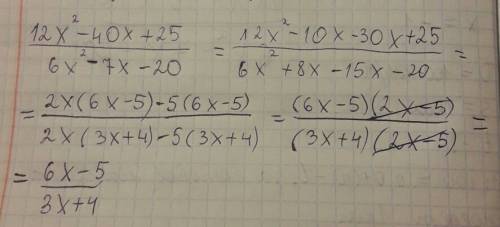 (12x²-40x+25)/(6x²-7x-20) = (12x²-10x-30x+25)/(6x²+8x-15x-20) =
= (2x(6x-5)-5(6x-5))/(2x(3x+4)-5(3x+4)) = ((6x-5)(2x-5))/((3x+4)(2x-5)) =
= (6x-5)/(3x+4)